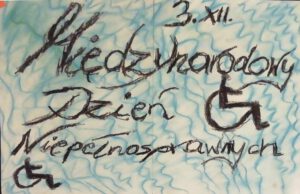 3. XII.
Międzynarodowy
Dzień
Niepełnosprawnych